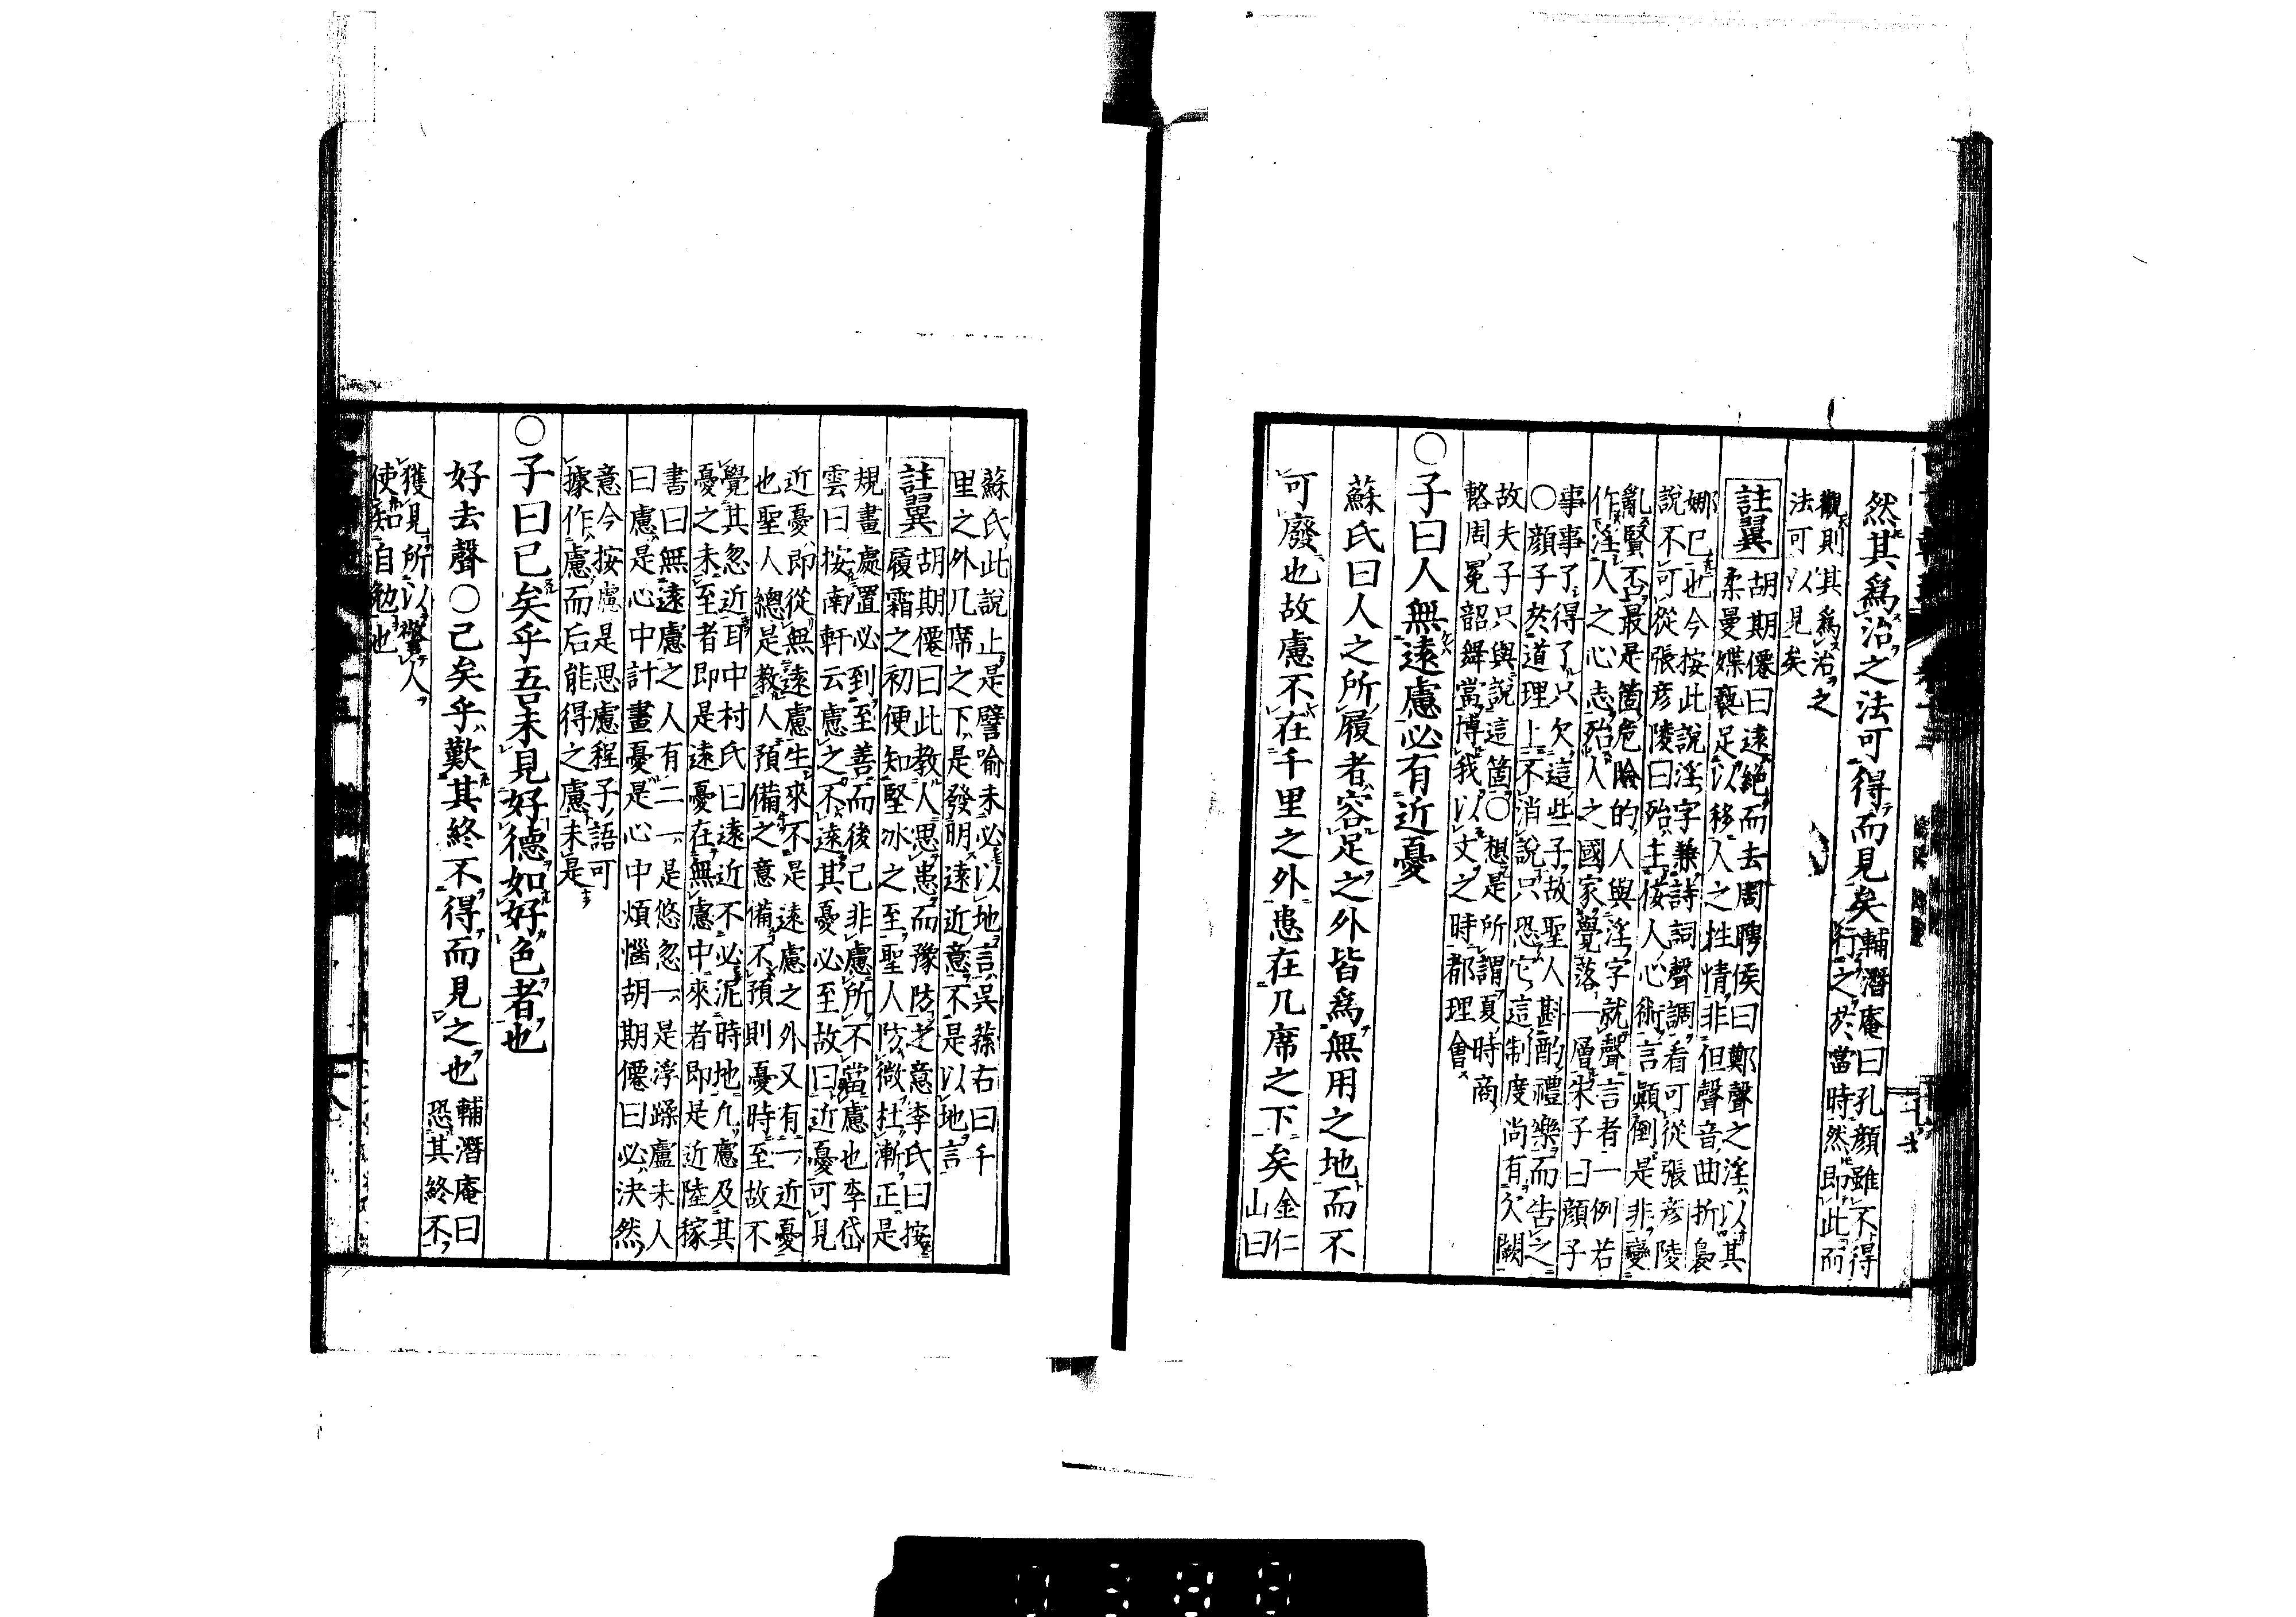 然其爲治之法可得而見矣輔潛庵曰孔顔雖不得
行之於當時然即此而
觀則其爲治之
法可以見矣
註翼
胡期僊曰遠絶而去周聘侯曰鄭聲之淫以其
柔曼媟褻足以移人之性情非但聲音曲折裊
娜已也今按此說淫字兼詩詞聲調看可從張彦陵
說不可從張彦陵曰殆主侫人心術言顚倒是非變
亂賢否最是箇危險的人與淫字就聲言者一例若
作淫人之心志殆人之國家覺落一層朱子曰顔子
事事了得了只欠這些子故聖人斟酌禮樂而告之
○顔子於道理上不消說只恐它這制度尚有欠闕
故夫子只與說這箇○想是所謂夏時商
輅周冕韶舞當博我以文之時都理會
○子曰人無遠慮必有近憂
蘇氏曰人之所履者容足之外皆爲無用之地而不
可廢也故慮不在千里之外患在几席之下矣金仁
山曰
蘇氏此說止是譬喻未必以地言吳蓀右曰千
里之外几席之下是發明遠近意不是以地言
註翼
胡期僊曰此教人思患而豫防之意李氏曰按
履霜之初便知堅冰之至聖人防微杜漸正是
規畫處置必到至善而後已非慮所不當慮也李岱
雲曰按南軒云慮之不遠其憂必至故曰近憂可見
近憂即從無遠慮生來不是遠慮之外又有一近憂
也聖人總是教人預備之意備不預則憂時至故不
覺其忽近耳中村氏曰遠近不必泥時地凢慮及其
憂之未至者即是遠憂在無慮中來者即是近陸稼
書曰無遠慮之人有二一是悠忽一是浮躁盧未人
曰慮是心中計畫憂是心中煩惱胡期僊曰必決然
意今按慮是思慮程子語可
據作慮而后能得之慮未是
○子曰已矣乎吾未見好德如好色者也
好去聲○已矣乎歎其終不得而見之也輔潛庵曰
恐其終不
獲見所以警人
使知自勉也